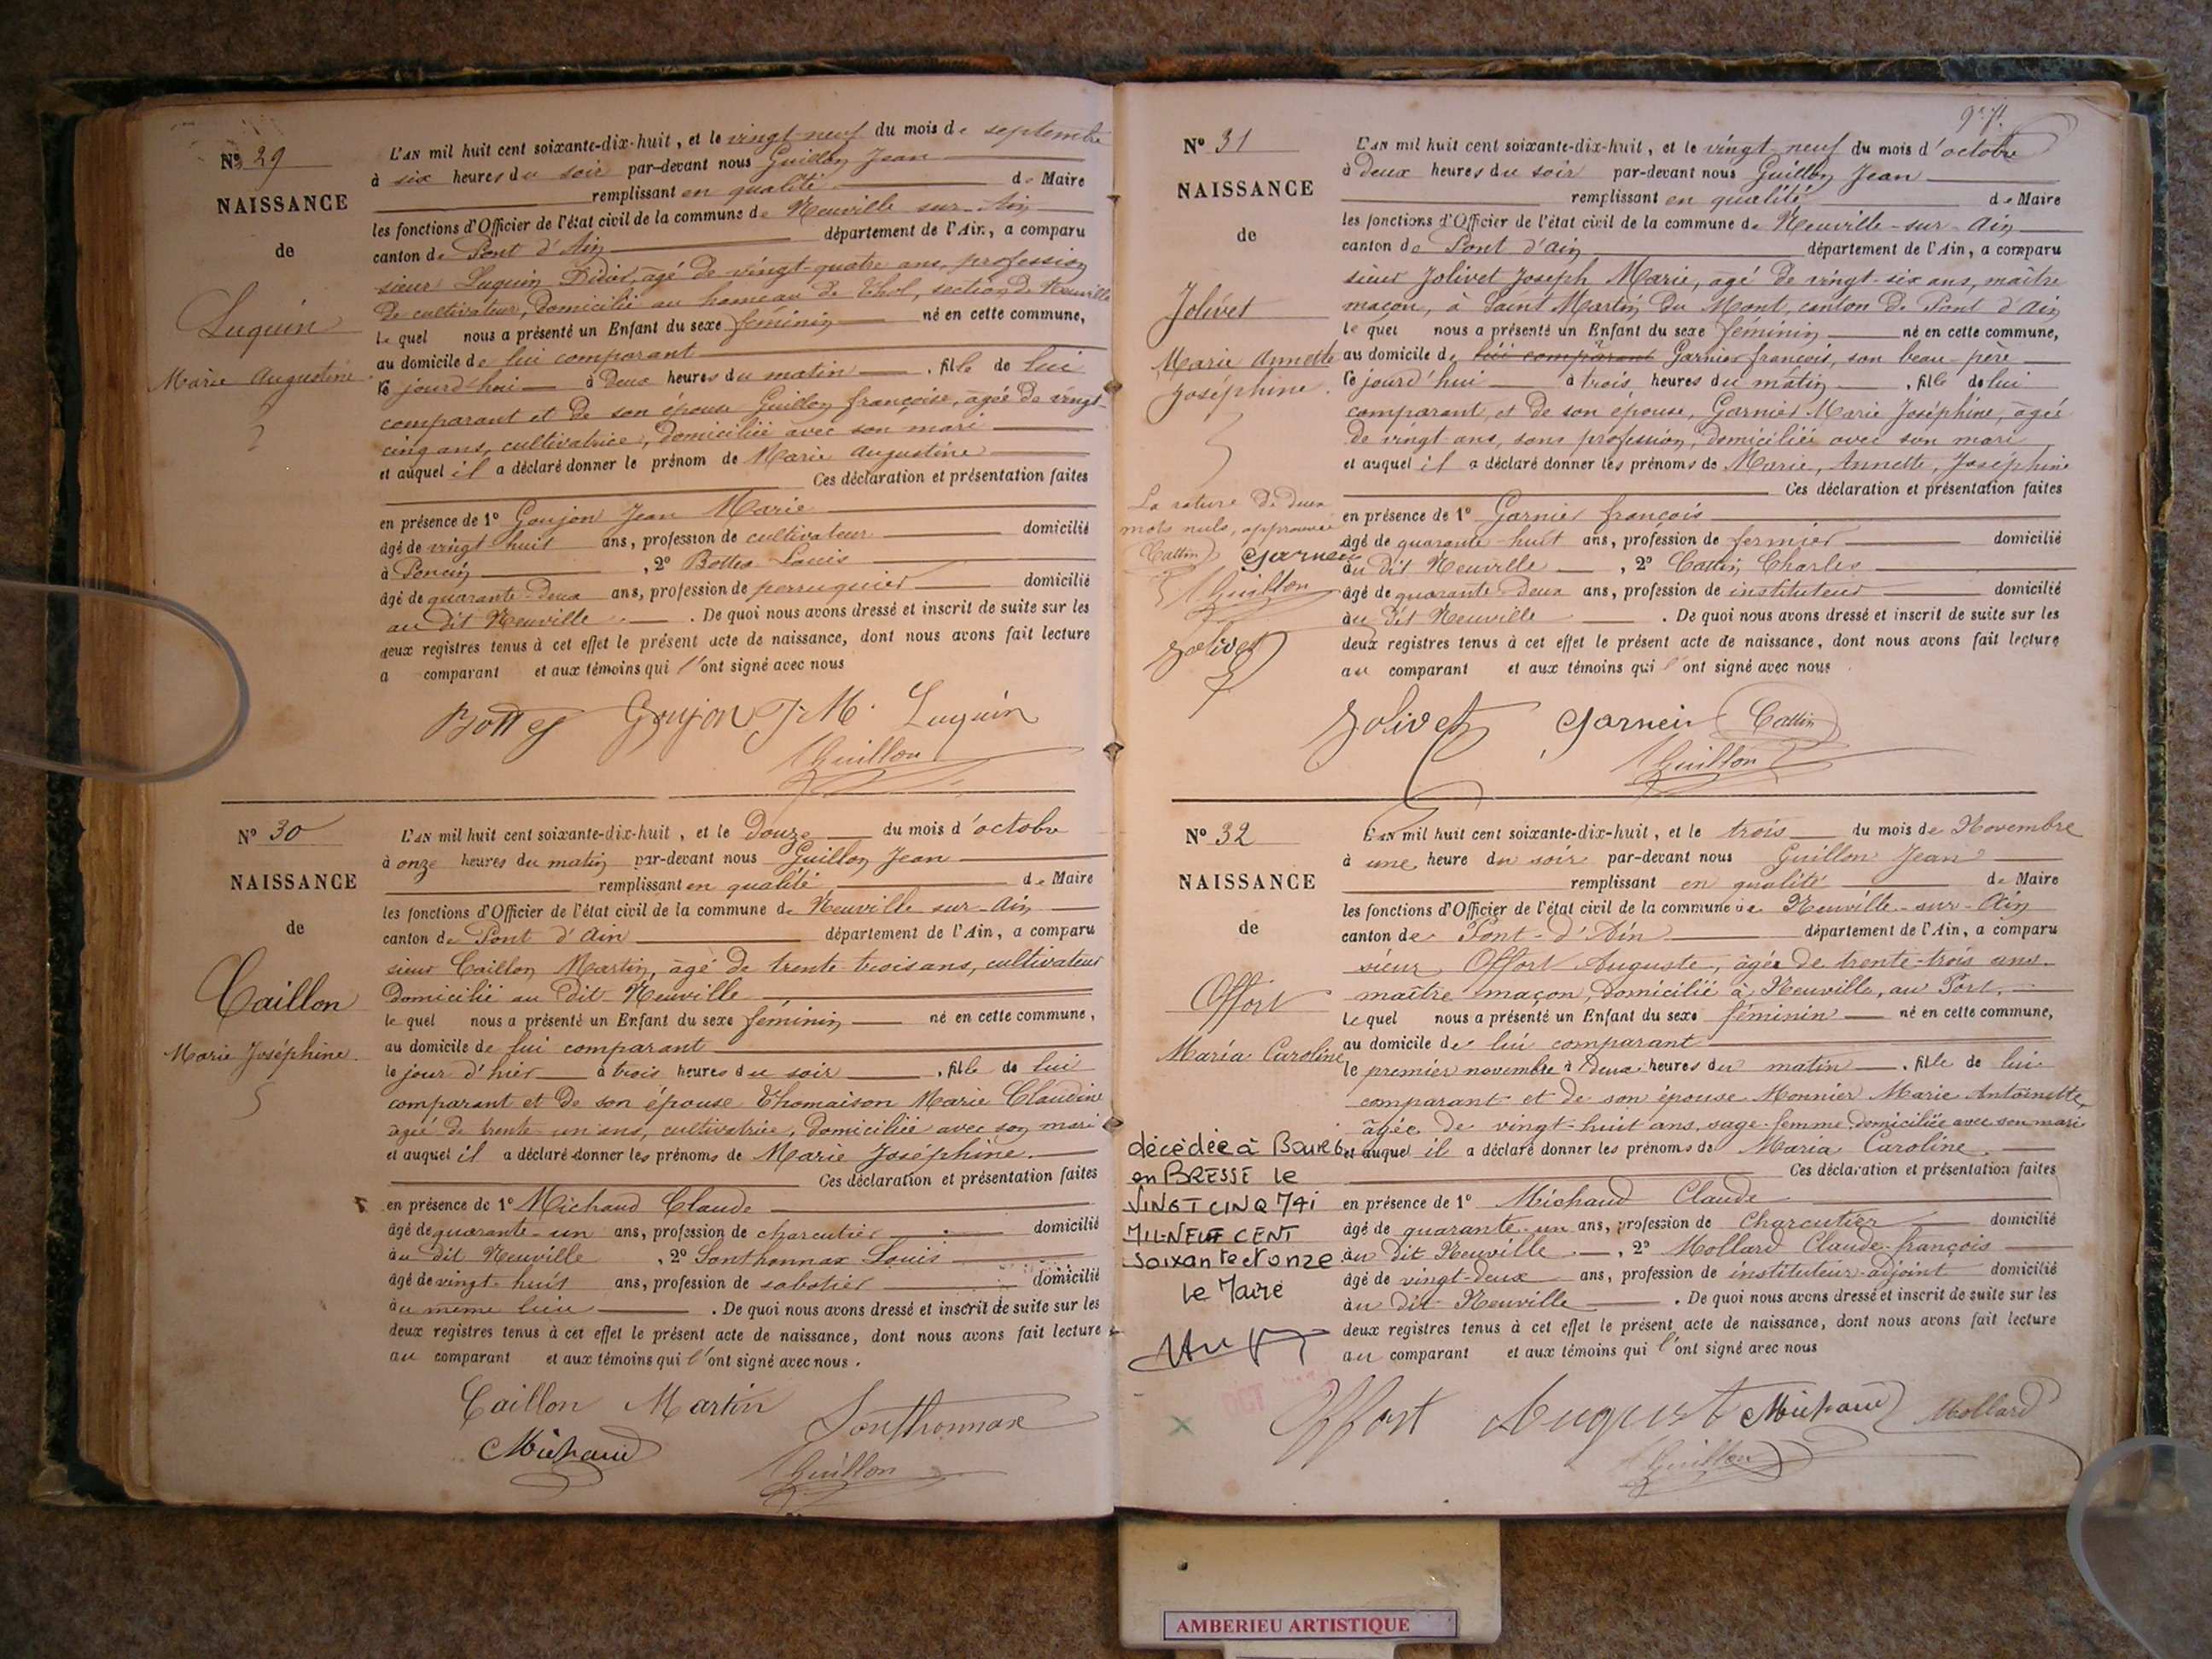 Nº 29
NAISSANCE
de
Luquin
Marie Augustine
L'AN mil huit cent soixante-dix-huit, et le vingt-neuf du mois de septembre
à six heures du soir par-devant nous Guillon Jean
remplissant en qualité de Maire
les fonctions d'Officier de l'état civil de la commune de Neuville-sur-Ain
canton de Pont d'Ain département de l'Ain, a comparu
sieur Luquin Didier, âgé de vingt-quatre ans, profession
de cultivateur, domicilié au hameau de Thol, section de Neuville
le quel nous a présenté un Enfant du sexe féminin né en cette commune,
au domicile de lui comparant
ce jourd'hui à deux heures du matin, fille de lui
comparant et de son épouse Guillon françoise, agée de vingt-
cinq ans, cultivatrice, domiciliée avec son mari
et auquel il a déclaré donner le prénom de Marie Augustine
Ces déclaration et présentation faites
en présence de 1º Goujon Jean Marie
âgé de vingt huit ans, profession de cultivateur domicilié
à Poncin, 2º Bottex Louis
âgé de quarante-deux ans, profession de perruquier domicilié
au dit Neuville. De quoi nous avons dressé et inscrit de suite sur les
deux registres tenus à cet effet le présent acte de naissance, dont nous avons fait lecture
a comparant et aux témoins qui l'ont signé avec nous
Bottex Goujon J-M. Luquin
Guillon
Nº 30
NAISSANCE
de
Caillon
Marie Joséphine.
L'AN mil huit cent soixante-dix-huit, et le Douze du mois d'octobre
à onze heures du matin par-devant nous Guillon Jean
remplissant en qualité de Maire
les fonctions d'Officier de l'état civil de la commune de Neuville-sur-Ain
canton de Pont d'Ain département de l'Ain, a comparu
sieur Caillon Martin, âgé de trente-trois ans, cultivateur
domicilié au dit Neuville
le quel nous a présenté un Enfant du sexe féminin né en cette commune,
au domicile de lui comparant
le jour d'hier à trois heures du soir, fille de lui
comparant et de son épouse Thomaison Marie Claudine
agée de trente-un ans, cultivatrice, domiciliée avec son mari
et auquel il a déclaré donner les prénoms de Marie Joséphine.
Ces déclaration et présentation faites
en présence de 1º Michaud Claude
âgé de quarante-un ans, profession de charcutier domicilié
au dit Neuville, 2º Sonthonnax Louis
âgé de vingt-huit ans, profession de sabotier domicilié
au même lieu. De quoi nous avons dressé et inscrit de suite sur les
deux registres tenus à cet effet le présent acte de naissance, dont nous avons fait lecture
au comparant et aux témoins qui l'ont signé avec nous.
Caillon Martin Sonthonnax
Michaud Guillon
Nº 31
NAISSANCE
de
Jolivet
Marie Annette
Joséphine.
La rature de deux
mots nuls, approuvée
Cattin Garnier
Guillon
Jolivet
L'AN mil huit cent soixante-dix-huit, et le vingt-neuf du mois d'octobre
à Deux heures du soir par-devant nous Guillon Jean
remplissant en qualité de Maire
les fonctions d'Officier de l'état civil de la commune de Neuville-sur-Ain
canton de Pont d'Ain département de l'Ain, a comparu
sieur Jolivet Joseph Marie, âgé de vingt-six ans, maître
maçon, à Saint Martin du Mont, canton de Pont d'Ain
le quel nous a présenté un Enfant du sexe féminin né en cette commune,
au domicile de lui comparant Garnier françois, son beau-père
ce jourd'hui à trois heures du matin, fille de lui
comparant, et de son épouse, Garnier Marie Joséphine, âgée
de vingt ans, sans profession, domiciliée avec son mari
et auquel il a déclaré donner les prénoms de Marie, Annette, Joséphine
Ces déclaration et présentation faites
en présence de 1º Garnier françois
âgé de quarante-huit ans, profession de fermier domicilié
au dit Neuville, 2º Cattin Charles
âgé de quarante-deux ans, profession de instituteur domicilié
au dit Neuville. De quoi nous avons dressé et inscrit de suite sur les
deux registres tenus à cet effet le présent acte de naissance, dont nous avons fait lecture
au comparant et aux témoins qui l'ont signé avec nous
Jolivet Garneir Cattin
Guillon
Nº 32
NAISSANCE
de
Offort
Maria Caroline
décédée à Bourg
en BRESSE le
VINGT CINQ MAi
MIL NEUF CENT
soixante et onze
le Maire
L'AN mil huit cent soixante-dix-huit, et le trois du mois de Novembre
à une heure du soir par-devant nous Guillon Jean
remplissant en qualité de Maire
les fonctions d'Officier de l'état civil de la commune de Neuville-sur-Ain
canton de Pont-d'Ain département de l'Ain, a comparu
sieur Offort Auguste, âgé de trente-trois ans.
maître maçon, domicilié à Neuville, au Port,
le quel nous a présenté un Enfant du sexe féminin né en cette commune,
au domicile de lui comparant
le premier novembre à Deux heures du matin, fille de lui
comparant et de son épouse Monnier Marie Antoinette,
âgée de vingt-huit ans, sage-femme, domiciliée avec son mari
et auquel il a déclaré donner les prénoms de Maria Caroline.
Ces déclaration et présentation faites
en présence de 1º Michaud Claude
âgé de quarante-un ans, profession de Charcutier domicilié
au dit Neuville, 2º Mollard Claude-françois
âgé de vingt-deux ans, profession de instituteur-adjoint domicilié
au dit Neuville. De quoi nous avons dressé et inscrit de suite sur les
deux registres tenus à cet effet le présent acte de naissance, dont nous avons fait lecture
au comparant et aux témoins qui l'ont signé avec nous
Offort August Michaud Mollard
Guillon
AMBERIEU ARTISTIQUE